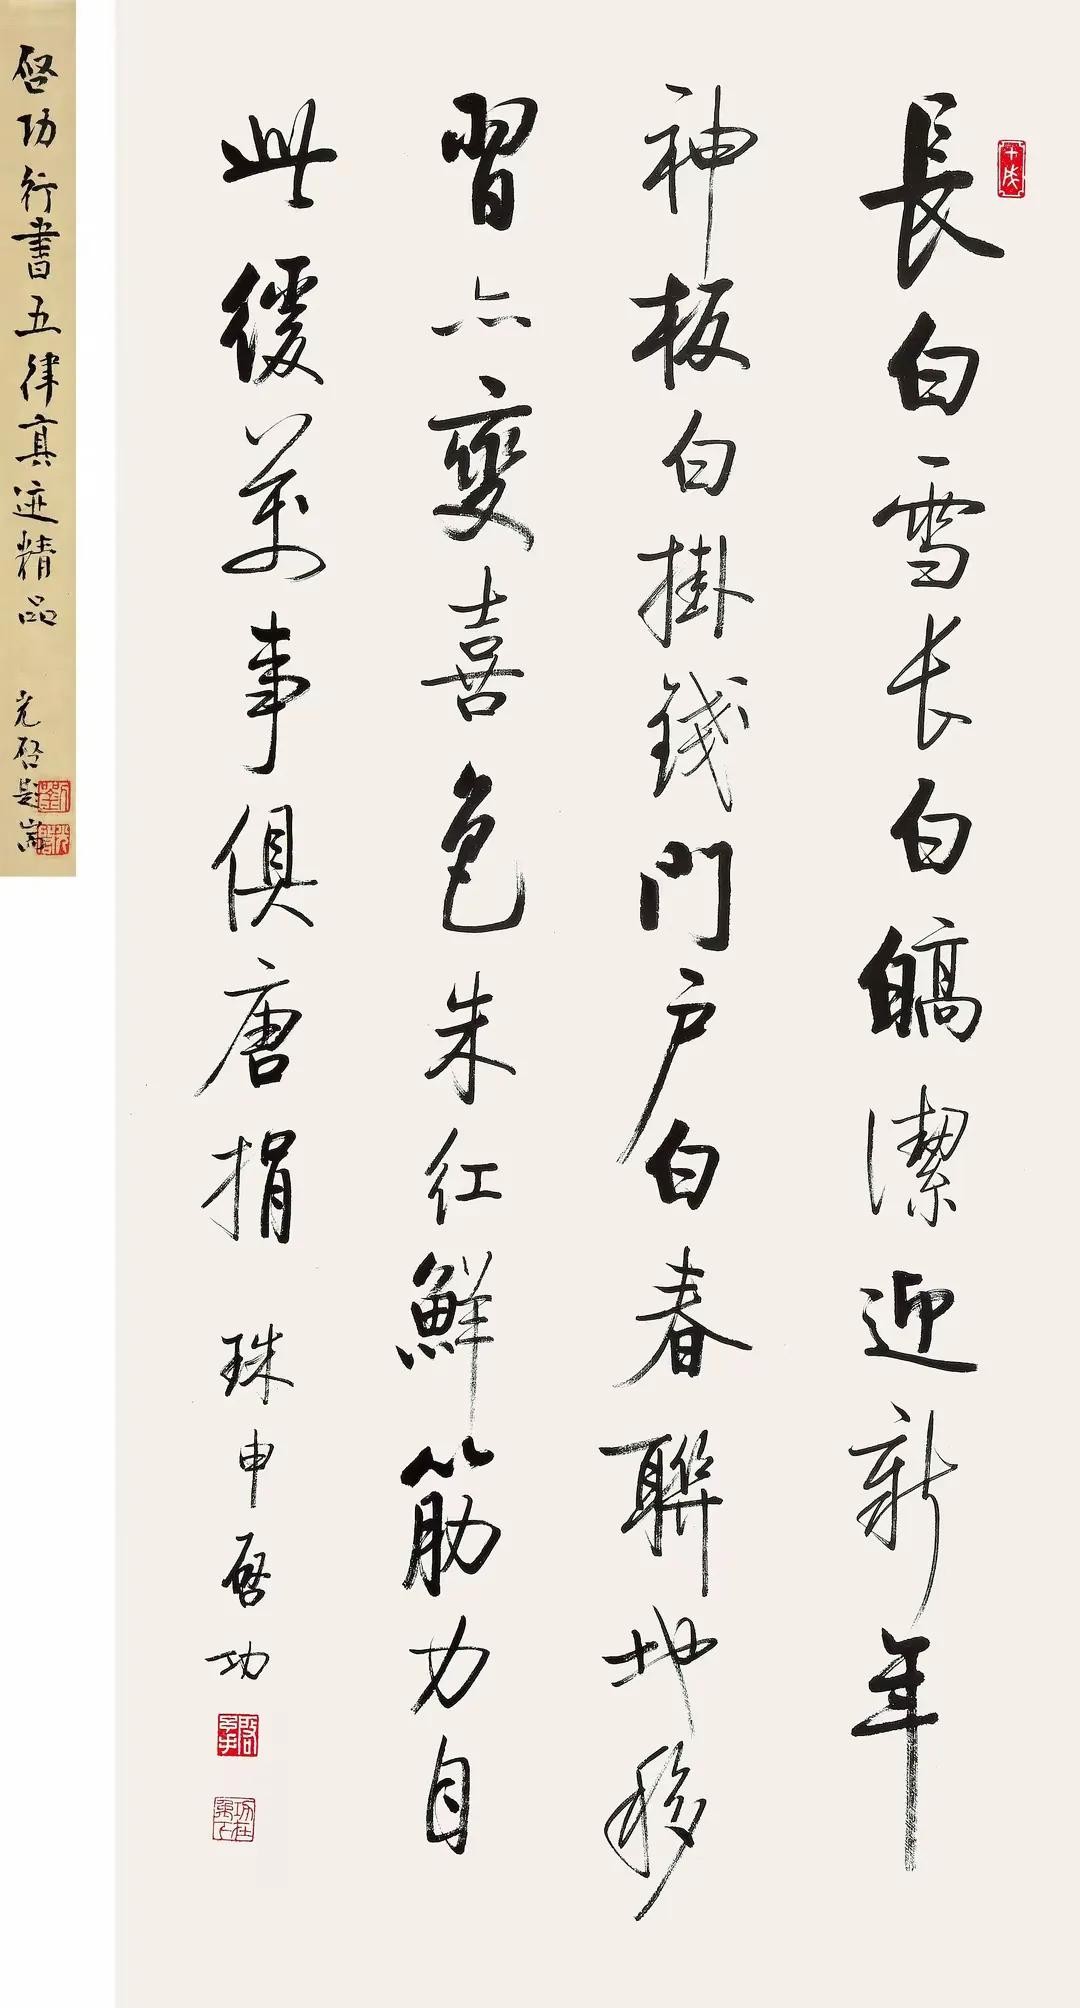 長白雪长白皜潔迎新年
神板白掛錢門户白春聯地移
習亦變喜色朱红鮮筋力自
此緩萬事俱唐捐 珠申启功
启功行書五律真迹精品 光启題耑